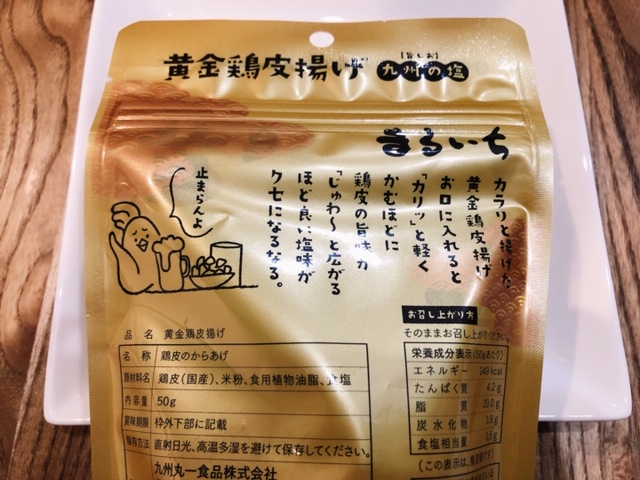 黄金鶏皮揚げ
【旨しお】
九州の塩
まるいち
カラリと揚げた
黄金鶏皮揚げ
お口に入れると
「カリッ」と軽く
かむほどに
鶏皮の旨味が
「じゅわ〜」と広がる
ほど良い塩味が
クセになるなる。
止まらんよ
お召し上がり方
そのままお召し上がりください。
品名 黄金鶏皮揚げ
名称 鶏皮のからあげ
原材料名 鶏皮(国産)、米粉、食用植物油脂、食塩
内容量 50g
賞味期限 枠外下部に記載
保存方法 直射日光、高温多湿を避けて保存してください。
九州丸一食品株式会社
栄養成分表示(50gあたり)
エネルギー 249kcal
たんぱく質 4.2g
脂質
炭水化物
食塩相当量
(この表示は、推定値です)